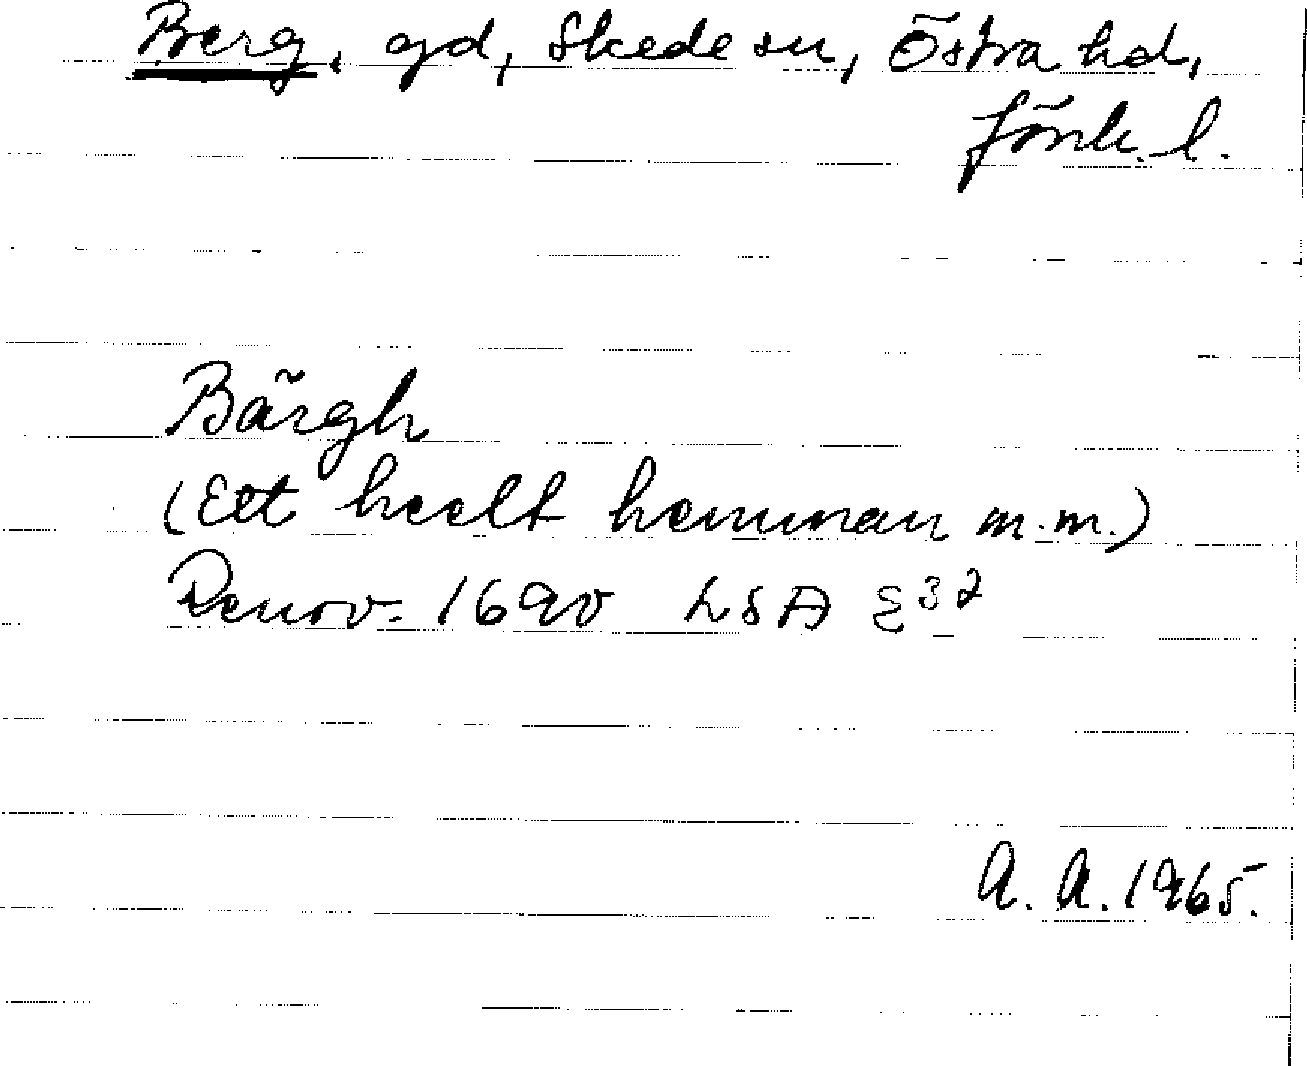 Berg, gd, Skede sn, Östra hd,
Jönk. l.
Bärgh
(Ett heelt hemman m.m.)
Renov. 1690 LSA E32
A. A. 1965.